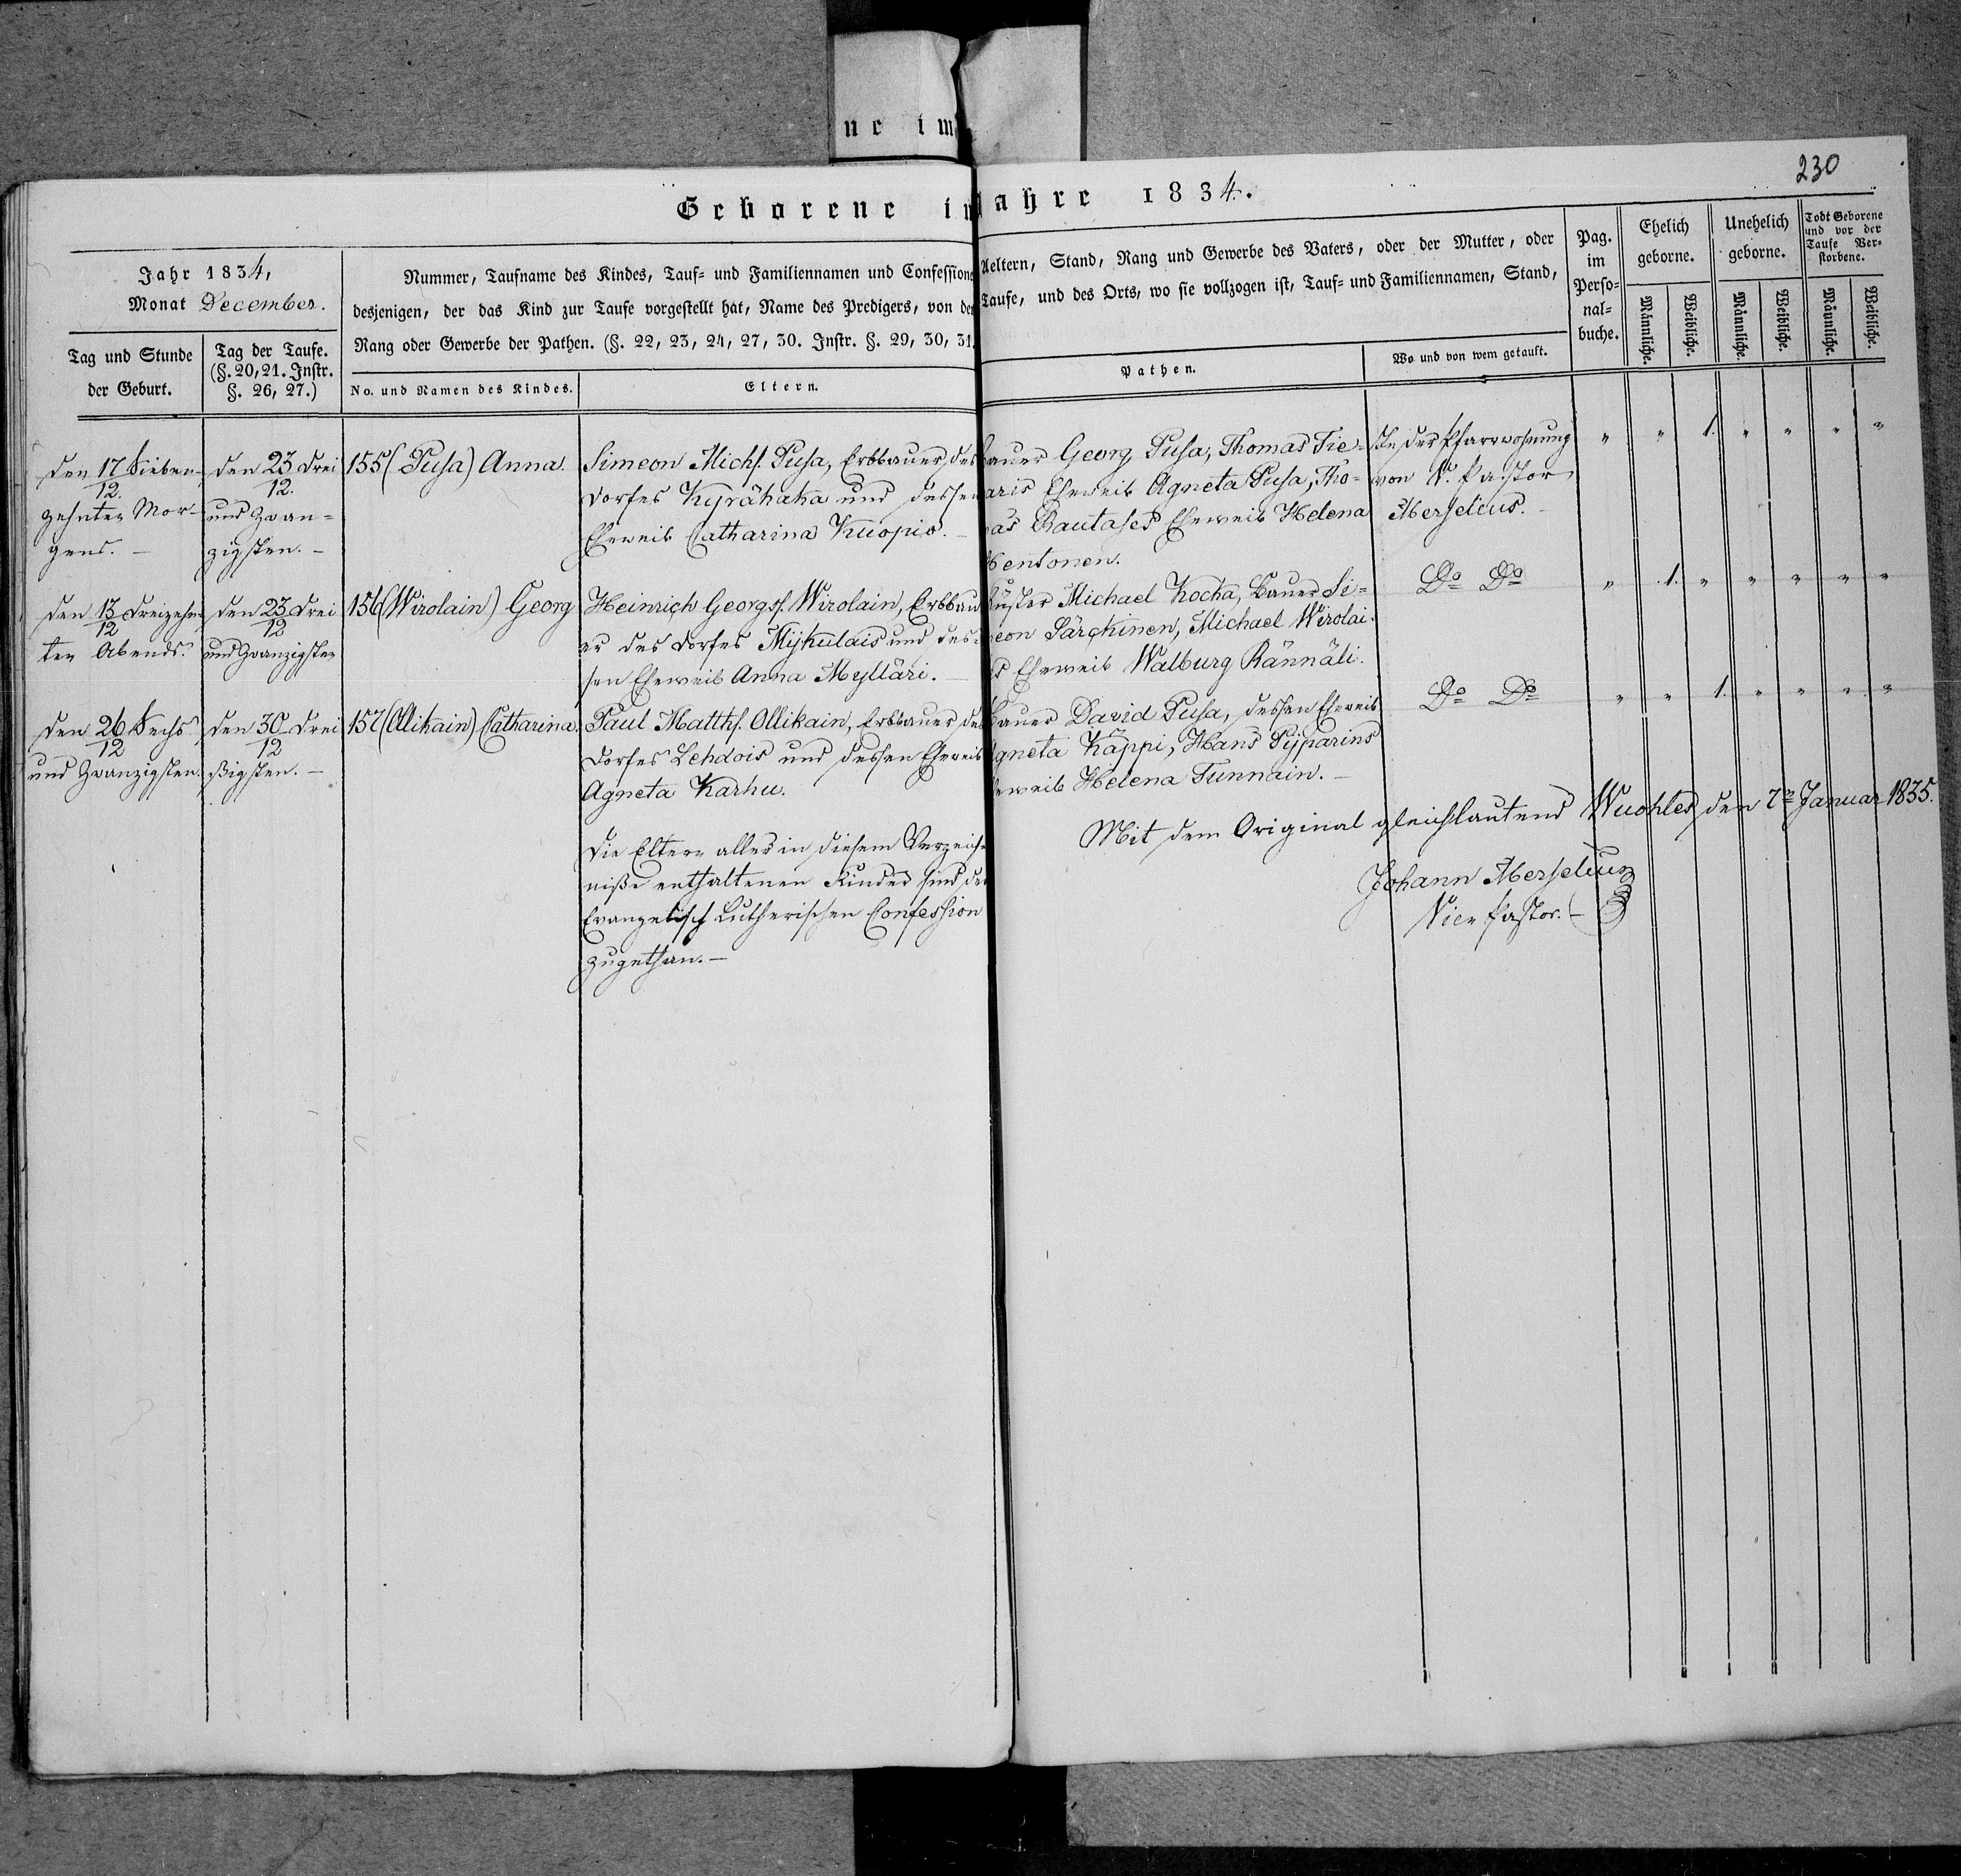 ne im
230
Geborene im Jahre 1834.
Jahr 1834,
Monat December.
Tag und Stunde
der Geburt.
Tag der Taufe.
(§. 20, 21. Instr.
§. 26, 27.)
Nummer, Taufname des Kindes, Tauf- und Familiennamen und Confessione
desjenigen, der das Kind zur Taufe vorgestellt hat, Name des Predigers, von de
Rang oder Gewerbe der Pathen. (§. 22, 23, 24, 27, 30. Instr. §. 29, 30, 31.
No. und Namen des Kindes.
Eltern.
Aeltern, Stand, Rang und Gewerbe des Vaters, oder der Mutter, oder
Taufe, und des Orts, wo sie vollzogen ist, Tauf- und Familiennamen, Stand,
Pathen.
Wo und von wem getauft.
Pag.
im
Perso-
nal-
buche.
Ehelich
geborne.
Unehelich
geborne.
Todt Geborene
und vor der
Taufe Ver-
storbene.
Männliche.
Weibliche.
Männliche.
Weibliche.
Männliche.
Weibliche.
den 17/12. Sieben-
zehnten Mor-
gens. –
den 23/12. drei
und Zwan-
zigsten. –
155 (Pusa) Anna.
Simeon Michs. Pusa, Erbbauer des
Dorfes Kyrähaka und dessen
Eheweib Catharina Kuopio. –
Bauer Georg Pusa, Thomas Tie-
aris Eheweib Agneta Pusa, Tho-
as Rautases Eheweib Helena
Hentonen.
In der Pfarrwohnung
von V. Pastor
Merselius. –
" " 1. " " " "
den 13/12 dreizehn-
ten Abends.
den 23/12 drei
und Zwanzigsten
156 (Wirolain) Georg
Heinrich Georgss. Wirolain, Erbbau
er des Dorfes Mijkulais und des-
sen Eheweib Anna Mylläri. –
Küster Michael Kocka, Bauer Si-
meon Särckinen, Michael Wirolai-
s Eheweib Walburg Rännäli.
Do Do
" 1. " " " " "
den 26/12 Sechs
und Zwanzigsten.
den 30/12 drei
ßigsten. –
157 (Ollikain) Catharina.
Paul Matths. Ollikain, Erbbauer des
Dorfes Lehdois und dessen Eheweib
Agneta Karhu.
Bauer David Pusa, dessen Eheweib
Agneta Käppi, Hans Pijparins
Eheweib Helena Tunnain. –
Do Do
" " 1. " " " "
Die Eltern aller in diesem Verzeich-
niße enthaltenen Kinder sind der
Evangelisch Lutherischen Confession
zugethan. –
Mit dem Original gleichlautend Wuohles, den 7n Januar 1835.
Johann Merselius
Vice Pastor. –